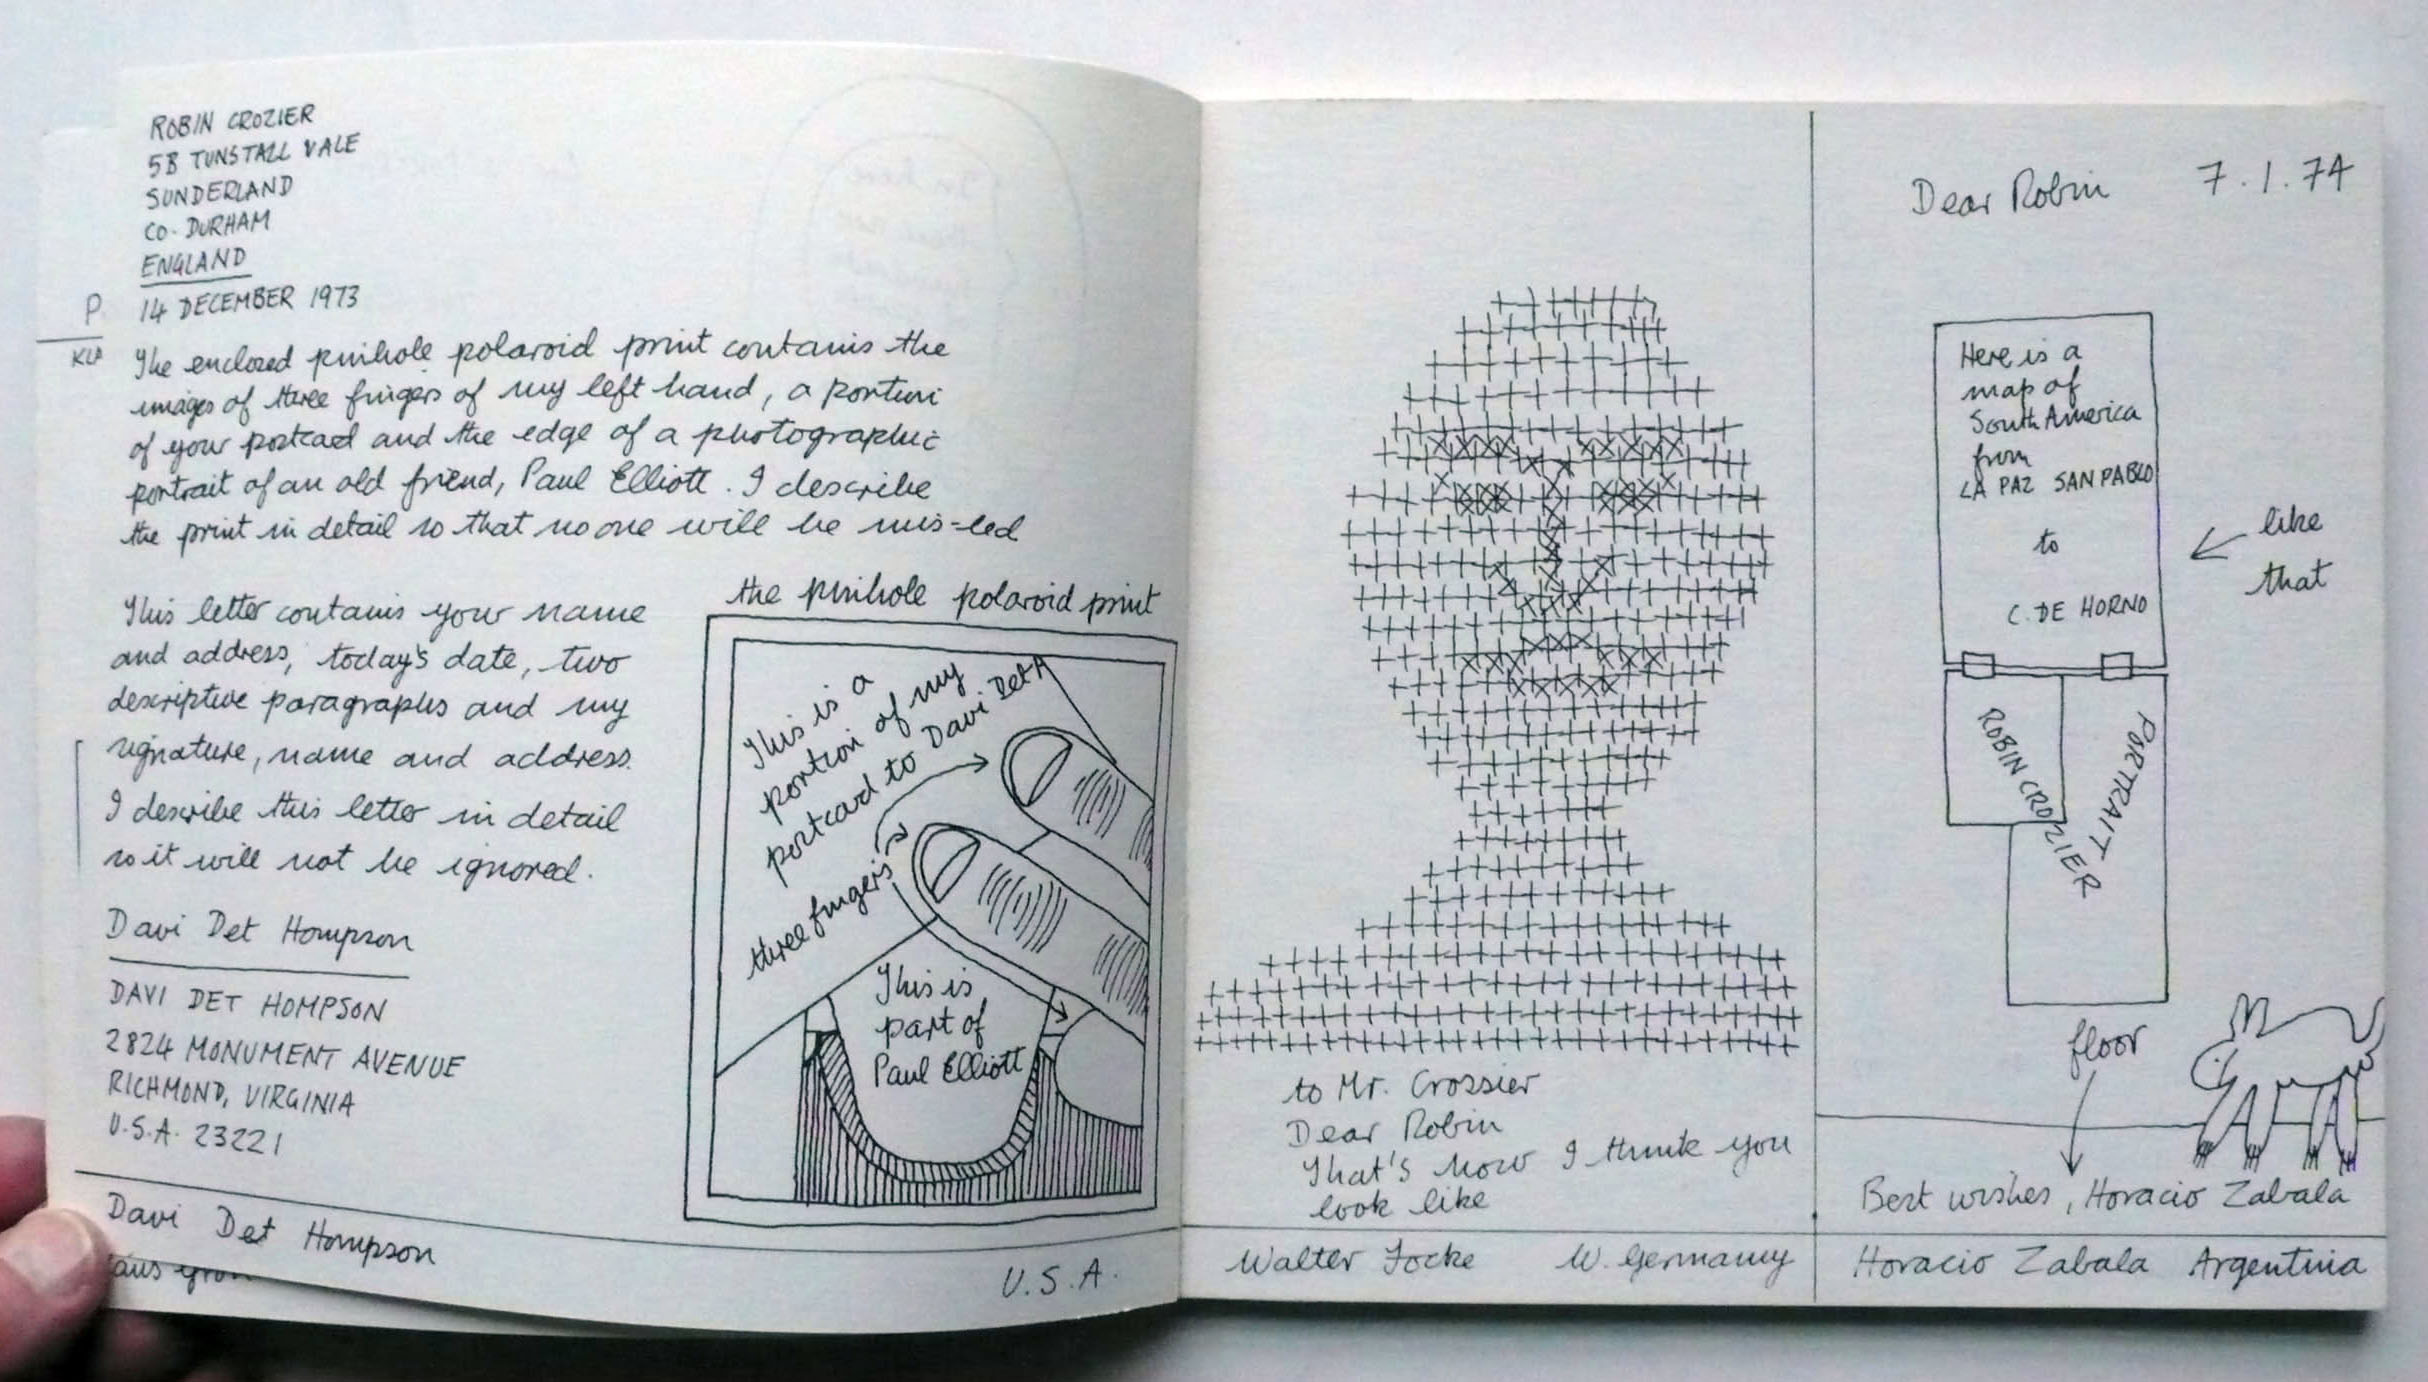 ROBIN CROZIER
5B TUNSTALL VALE
SUNDERLAND
CO. DURHAM
ENGLAND
14 DECEMBER 1973
The enclosed pinhole polaroid print contains the
images of three fingers of my left hand, a portion
of your postcard and the edge of a photographic
portrait of an old friend, Paul Elliott. I describe
the print in detail so that no one will be mis-led
This letter contains your name
and address, today's date, two
descriptive paragraphs and my
signature, name and address.
I describe this letter in detail
so it will not be ignored.
Davi Det Hompson
DAVI DET HOMPSON
2824 MONUMENT AVENUE
RICHMOND, VIRGINIA
U.S.A. 23221
the pinhole polaroid print
This is a
portion of my
postcard to Davi Det H
three fingers
This is
part of
Paul Elliott
Davi Det Hompson
U.S.A.
P.
to Mr. Crossier
Dear Robin
That's how I think you
look like
Walter Focke W. Germany
Dear Robin 7.1.74
Here is a
map of
South America
from
LA PAZ SAN PABLO
to
C. DE HORNO
like
that
ROBIN CROZIER
PORTRAIT
floor
Best wishes, Horacio Zabala
Horacio Zabala Argentina